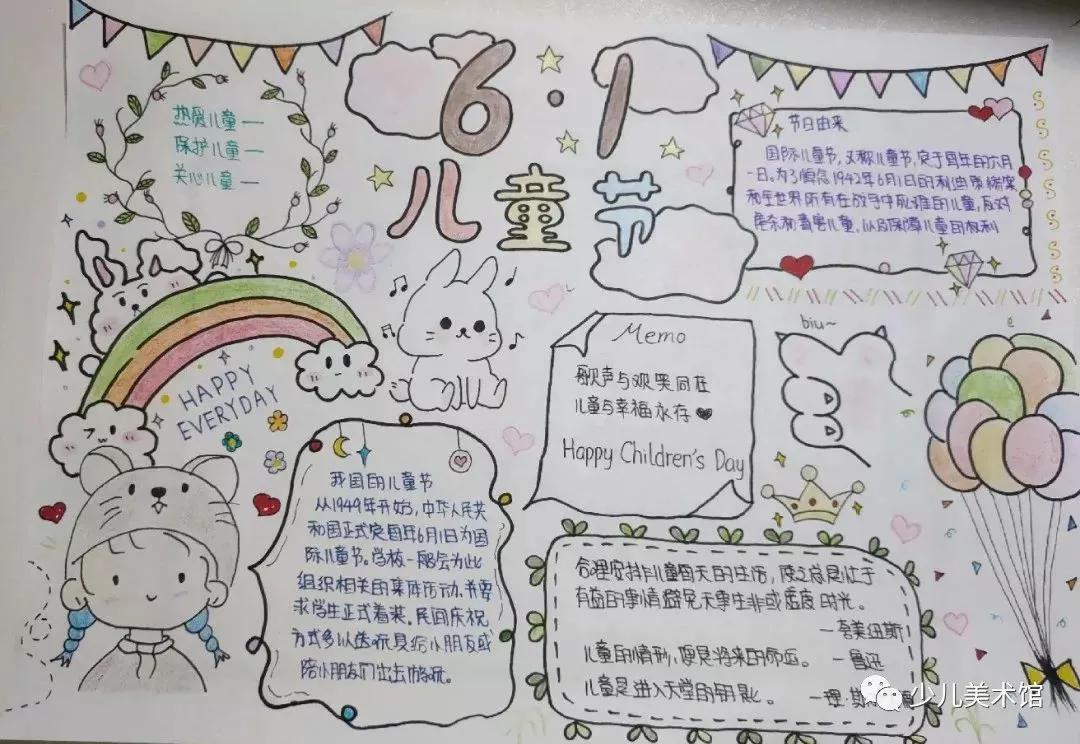 6·1
儿童节
热爱儿童一
保护儿童一
关心儿童一
节日由来
国际儿童节,又称儿童节,定于每年的六月
一日。为了悼念1942年6月1日的利迪策惨案
和全世界所有在战争中死难的儿童,反对
虐杀和毒害儿童,以及保障儿童的权利
HAPPY
EVERYDAY
Memo
歌声与欢笑同在
儿童与幸福永存
Happy Children's Day
biu~
我国的儿童节
从1949年开始,中华人民共
和国正式定每年6月1日为国
际儿童节。学校一般会为此
组织相关的集体活动,并要
求学生正式着装。民间庆祝
方式多以送玩具给小朋友或
陪小朋友们出去游玩。
合理安排儿童每天的生活,使之总是忙于
有益的事情避免无事生非或虚度时光。
—夸美纽斯
儿童的情形,便是将来的命运。 —鲁迅
儿童是进入天堂的钥匙。 —理·斯
少儿美术馆